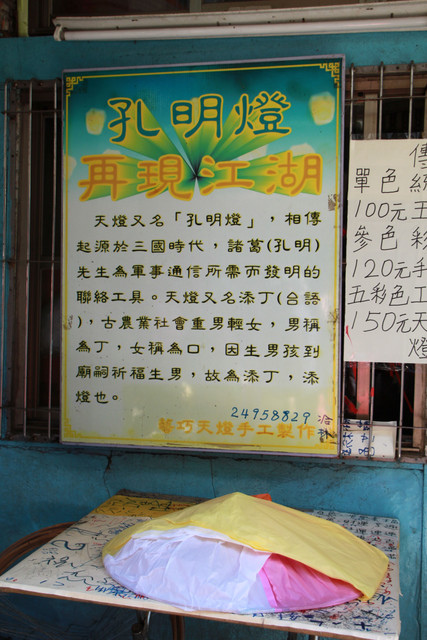 孔明燈
再現江湖
天燈又名「孔明燈」，相傳
起源於三國時代，諸葛(孔明)
先生為軍事通信所需而發明的
聯絡工具。天燈又名添丁(台語
)，古農業社會重男輕女，男稱
為丁，女稱為口，因生男孩到
廟祠祈福生男，故為添丁，添
燈也。
24958829 洽
藝巧天燈手工製作
傳
單色
100元
參色彩
120元手
五彩色工
150元天
燈